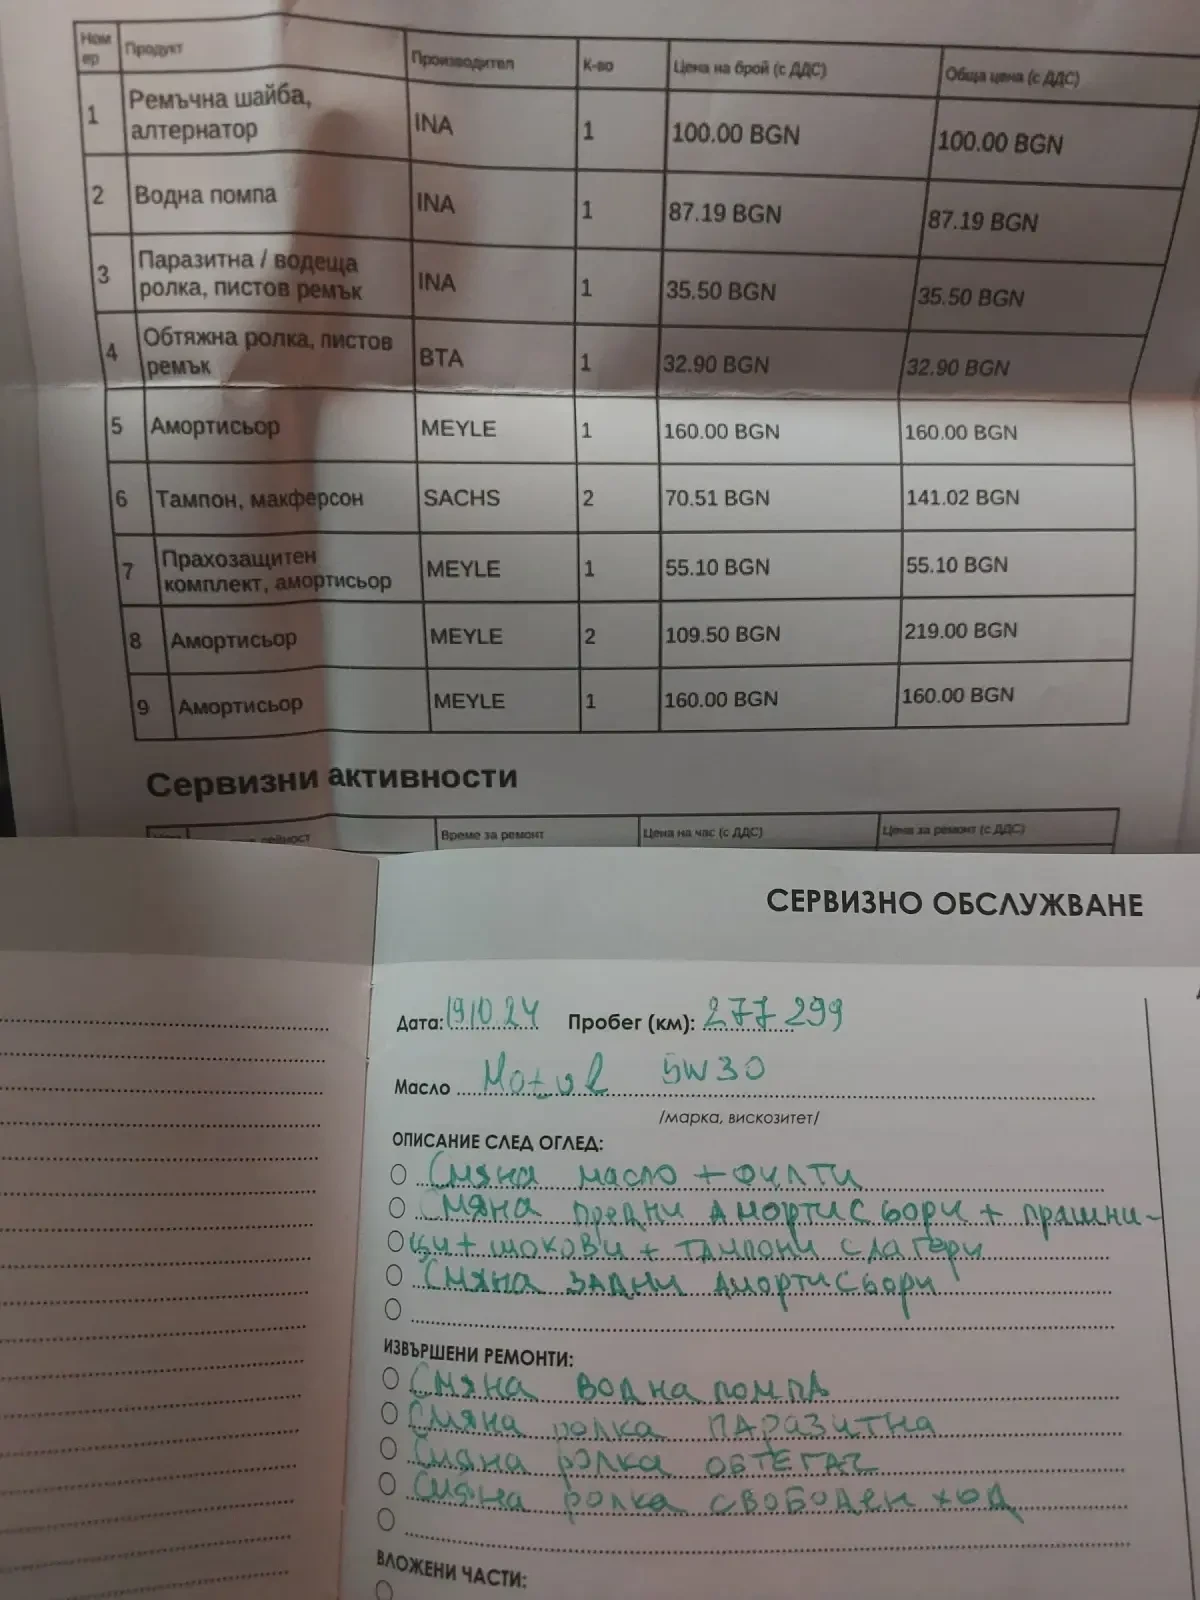 Ном Продукт Производител К-во Цена на брой (с ДДС) Обща цена (с ДДС)
ер
1 Ремъчна шайба, INA 1 100.00 BGN 100.00 BGN
алтернатор
2 Водна помпа INA 1 87.19 BGN 87.19 BGN
3 Паразитна / водеща INA 1 35.50 BGN 35.50 BGN
ролка, пистов ремък
4 Обтяжна ролка, пистов BTA 1 32.90 BGN 32.90 BGN
ремък
5 Амортисьор MEYLE 1 160.00 BGN 160.00 BGN
6 Тампон, макферсон SACHS 2 70.51 BGN 141.02 BGN
7 Прахозащитен MEYLE 1 55.10 BGN 55.10 BGN
комплект, амортисьор
8 Амортисьор MEYLE 2 109.50 BGN 219.00 BGN
9 Амортисьор MEYLE 1 160.00 BGN 160.00 BGN
Сервизни активности
Време за ремонт Цена на час (с ДДС) Цена за ремонт (с ДДС)
СЕРВИЗНО ОБСЛУЖВАНЕ
Дата: 19.10.24 Пробег (км): 277 299
Масло Motul 5W30
/марка, вискозитет/
ОПИСАНИЕ СЛЕД ОГЛЕД:
Смяна масло + филти
Смяна предни амортисьори + прашни-
ци + шокови + тампони с лагери
Смяна задни амортисьори
ИЗВЪРШЕНИ РЕМОНТИ:
Смяна водна помпа
Смяна ролка паразитна
Смяна ролка обтегач
Смяна ролка свободен ход
ВЛОЖЕНИ ЧАСТИ: